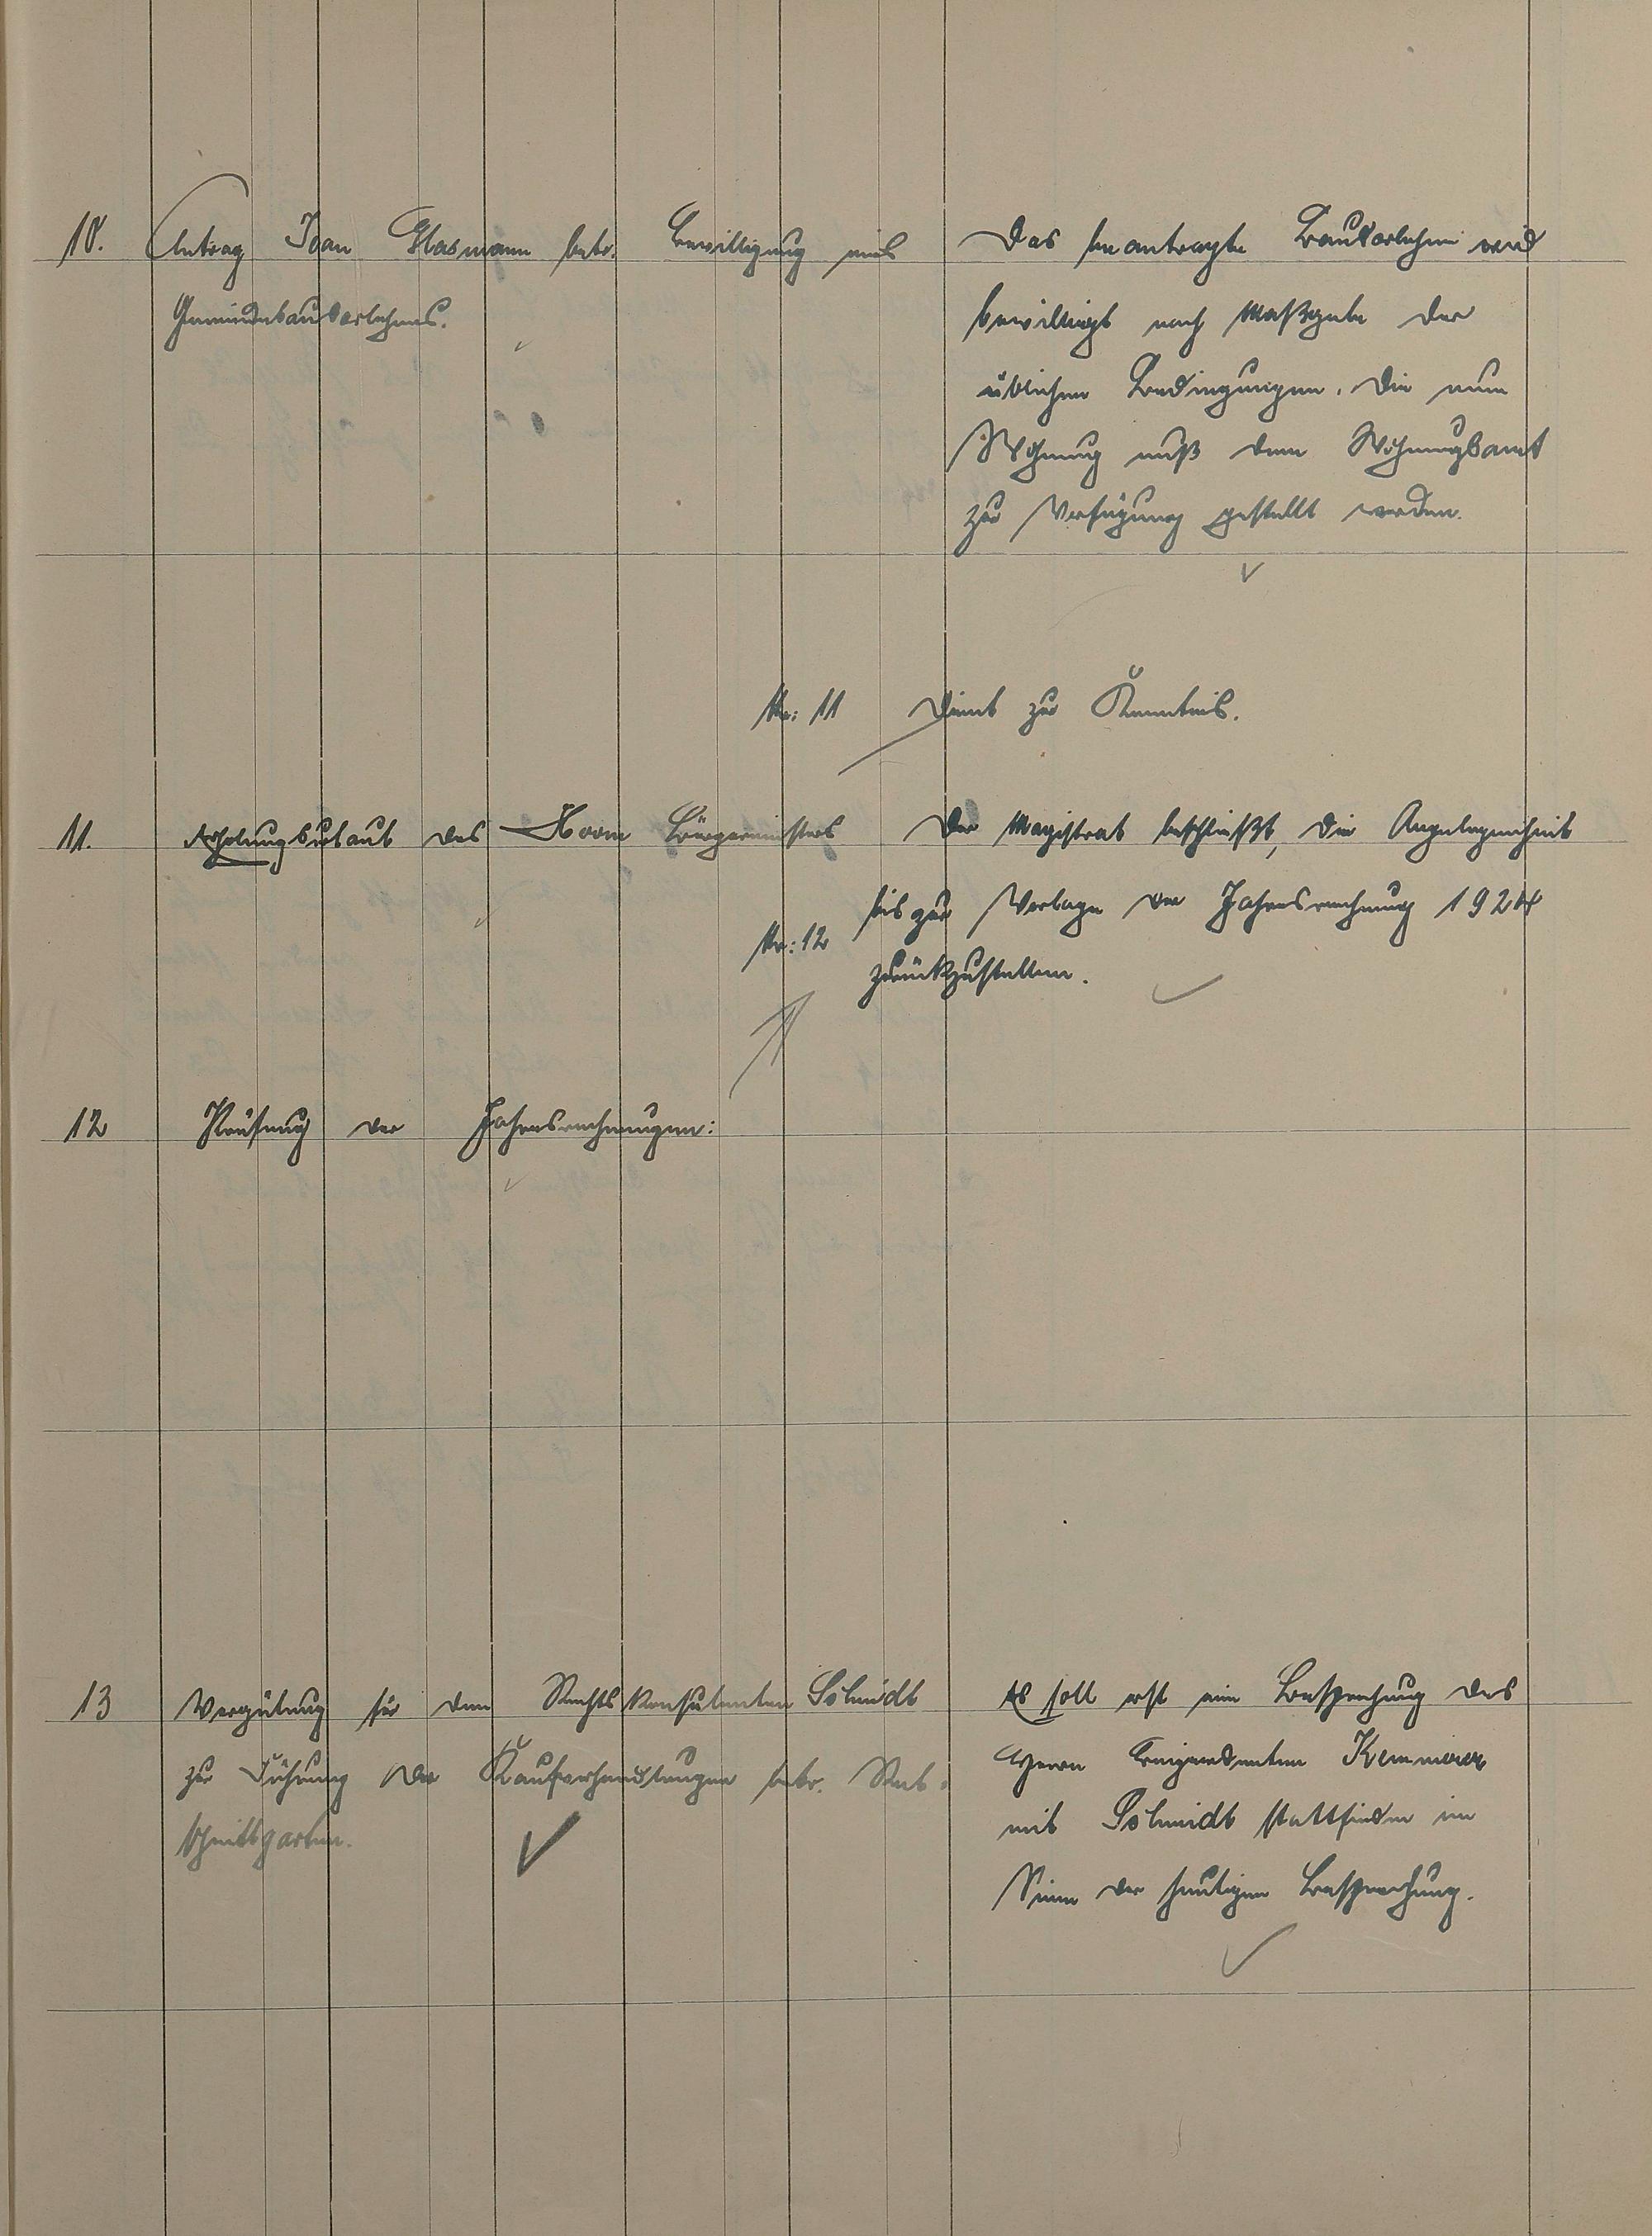 10. Antrag Ivan Glasmann betr. Bewilligung eines
Gemeindebaudarlehens.
Das beantragte Baudarlehen wird
bewilligt nach Maßgabe der
üblichen Bedingungen. Die neue
Wohnung muß dem Wohnungsamt
zur Verfügung gestellt werden.
Nr: 11 Dient zur Kenntnis.
11. Erholungsurlaub des Herrn Bürgermeisters
Nr: 12 Der Magistrat beschließt, die Angelegenheit
bis zur Vorlage der Jahresrechnung 1924
zurückzustellen.
12 Prüfung der Jahresrechnungen:
13 Vergütung für den Rechtskonsulenten Schmidt
zur Führung der Kaufverhandlungen betr.
Es soll erst eine Besprechung des
Herrn Beigeordneten Kemmerer
mit Schmidt stattfinden im
Sinne der heutigen Besprechung.